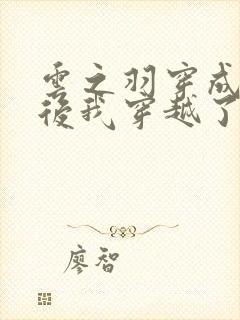 雲之羽穿成
後我穿越了
廖智